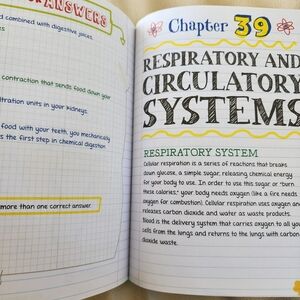 ANSWERS
d combined with digestive juices.
contraction that sends food down your
tration units in your kidneys.
food with your teeth, you mechanically
s the first step in chemical digestion.
more than one correct answer.
Chapter 39
RESPIRATORY AND
CIRCULATORY
SYSTEMS
RESPIRATORY SYSTEM
Cellular respiration is a series of reactions that breaks
down glucose, a simple sugar, releasing chemical energy
for your body to use. In order to use this sugar or "burn
these calories," your body needs oxygen (like a fire needs
oxygen for combustion). Cellular respiration uses oxygen and
releases carbon dioxide and water as waste products.
Blood is the delivery system that carries oxygen to all you
cells from the lungs and returns to the lungs with carbon
dioxide waste.